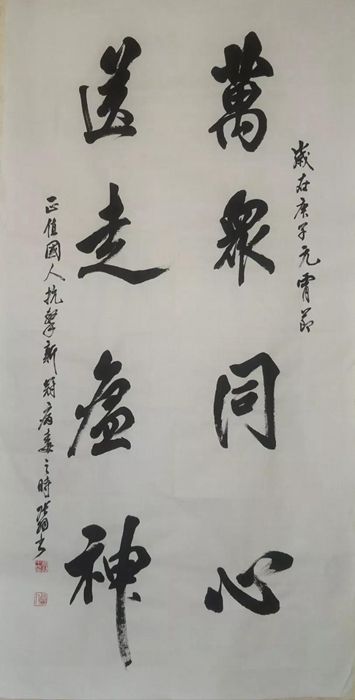 歲在庚子元宵節
萬眾同心
送走瘟神
正值國人抗擊新冠病毒之時